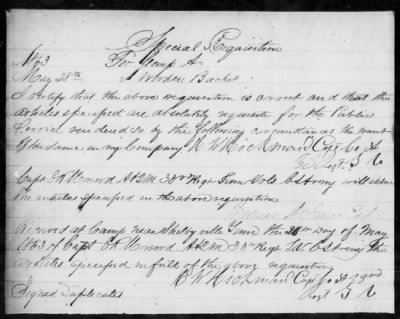 Special Requisition
1863 For Comp A
May 28th 1 Wooden Bucket
I certify that the above requisition is correct and that the
articles specified are absolutely requisite for the Public
Service rendered so by the following circumstances the want
of the same in my Company
Capt Co A
Regt
Capt AQM Regt Tenn Vols CS Army will issue
the articles specified in the above requisition
Received at Camp near Shelbyville Tenn the 28th Day of May
1863 of Capt AQM Regt CS Army the
articles specified in full of the above requisition
Capt Co A
Signed Duplicates Regt